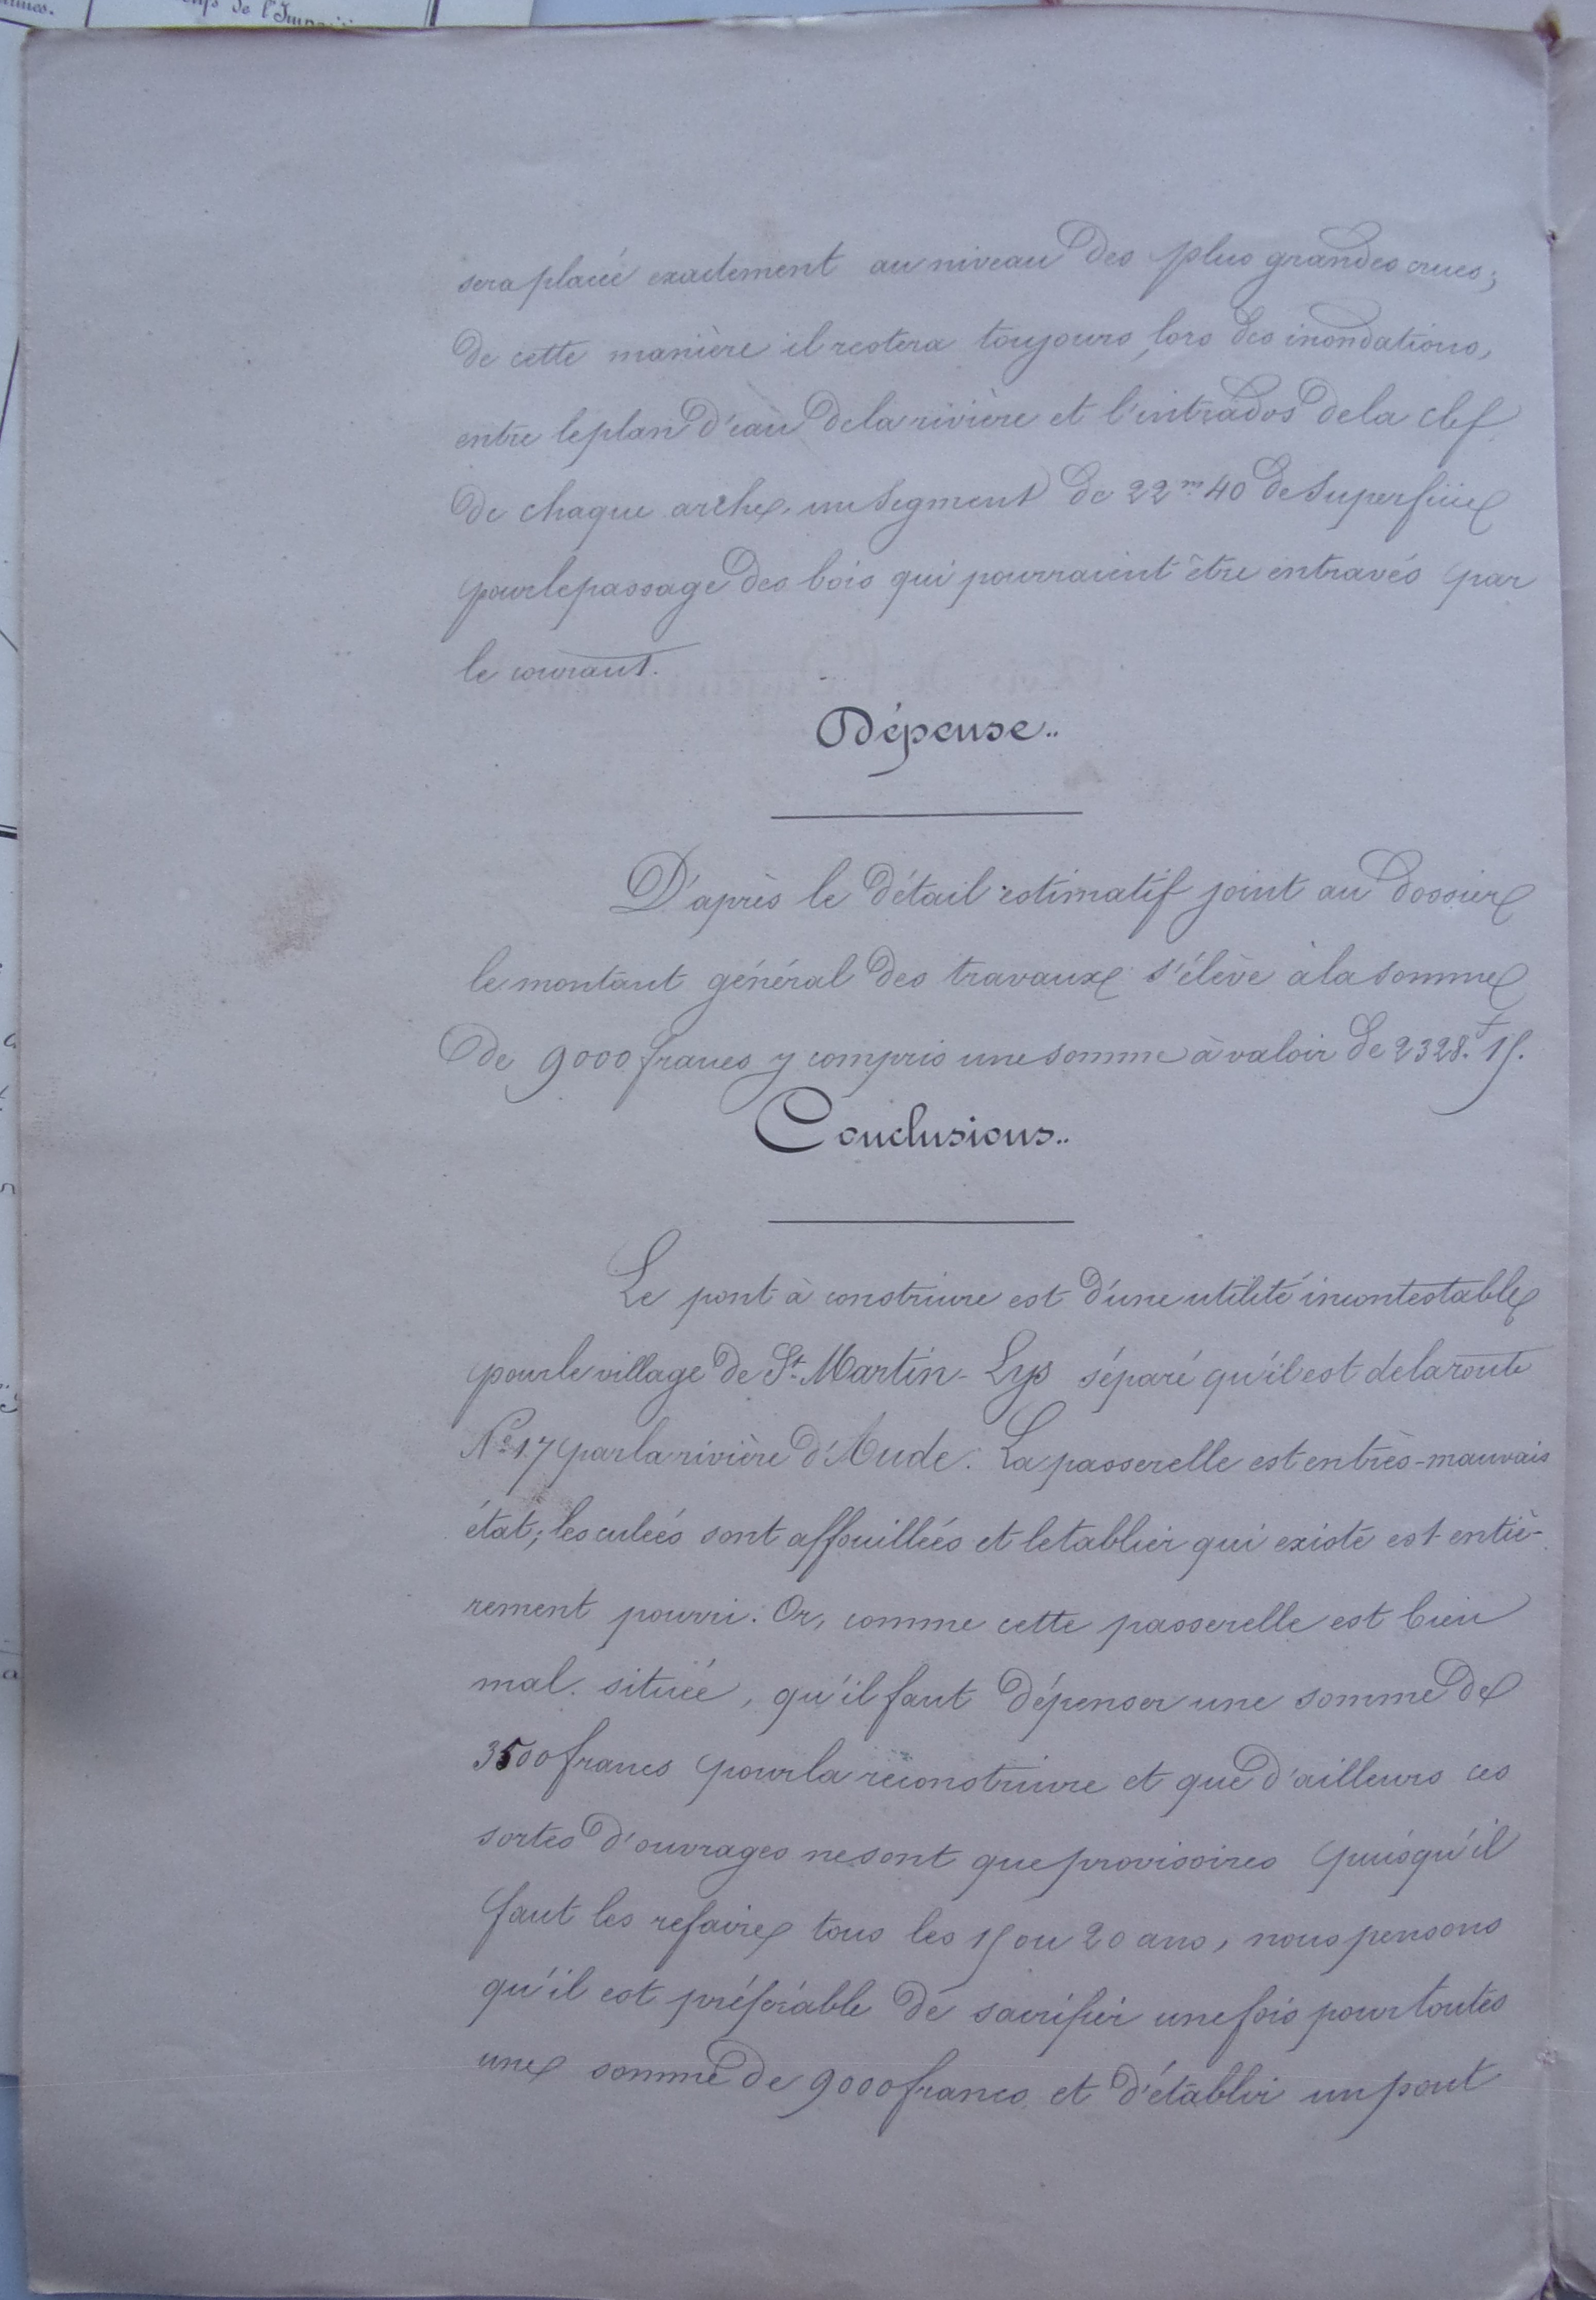 sera placé exactement au niveau des plus grandes crues;
de cette manière il restera toujours, lors des inondations,
entre le plan d'eau de la rivière et l'intrados de la clef
de chaque arche, un segment de 22m 40 de Superficie
pour le passage des bois qui pourraient être entravés par
le courant.
Dépense..
D'après le détail estimatif joint au dossier
le montant général des travaux s'élève à la somme
de 9000 francs y compris une somme à valoir de 2328.f 15.
Conclusions..
Le pont à construire est d'une utilité incontestable
pour le village de St. Martin-Lys séparé qu'il est de la route
No. 17 par la rivière d'Aude. La passerelle est en très-mauvais
état; les culées sont affouillées et le tablier qui existe est entiè-
rement pourri. Or, comme cette passerelle est bien
mal située, qu'il faut dépenser une somme de
3500 francs pour la reconstruire et que d'ailleurs ces
sortes d'ouvrages ne sont que provisoires puisqu'il
faut les refaire tous les 15 ou 20 ans, nous pensons
qu'il est préférable de sacrifier une fois pour toutes
une somme de 9000 francs et d'établir un pont